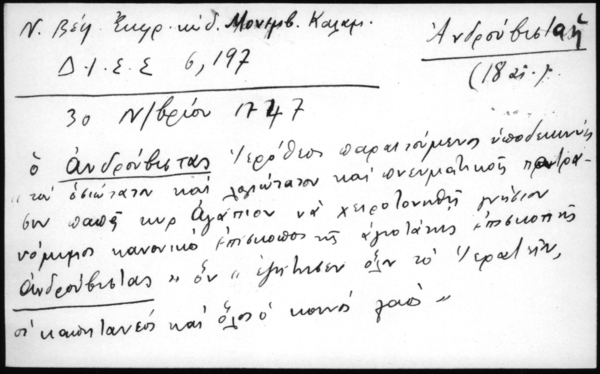 Ν. Βέη. Ἐκκρ. κώδ. Μονεμβ. Καλαμ.
Ἀνδρούβιστα
Δ.Ι.Ε.Ε 6, 197
(18 αἰ.)
30 Ν/βρίου 1747
ὁ Ἀνδρούβιστας Ἱερόθεος παραιτούμενος ὑποδεικνύει
"τὸν ὁσιώτατον καὶ λογιώτατον καὶ πνευματικὸς πατρα-
σιν παπᾶ κυρ Ἀγάπιον νὰ χειροτονηθῇ γνήσιον
νόμιμος κανονικὸ ἐπίσκοπος τῆς ἁγιοτάτης ἐπισκοπῆς
Ἀνδρούβιστας" ὃν "ἐζήτησεν ὅλον τὸ ἱερατεῖον,
οἱ καπητανέοι καὶ ὅλος ὁ κοινὸς λαός"